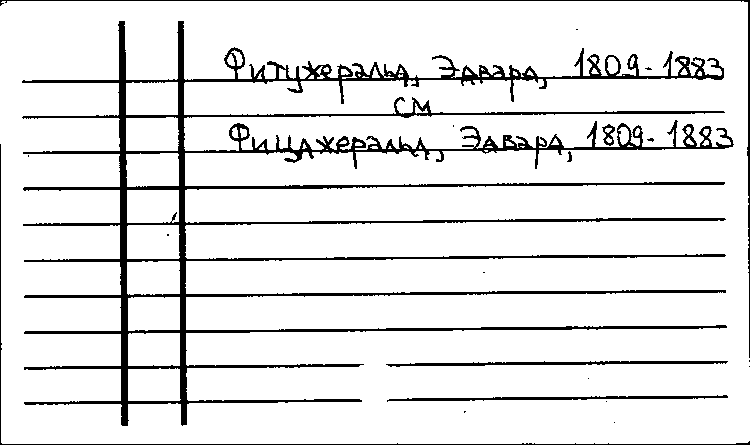 Фитужеральд, Эдвард, 1809-1883
см
Фицджеральд, Эдвард, 1809-1883